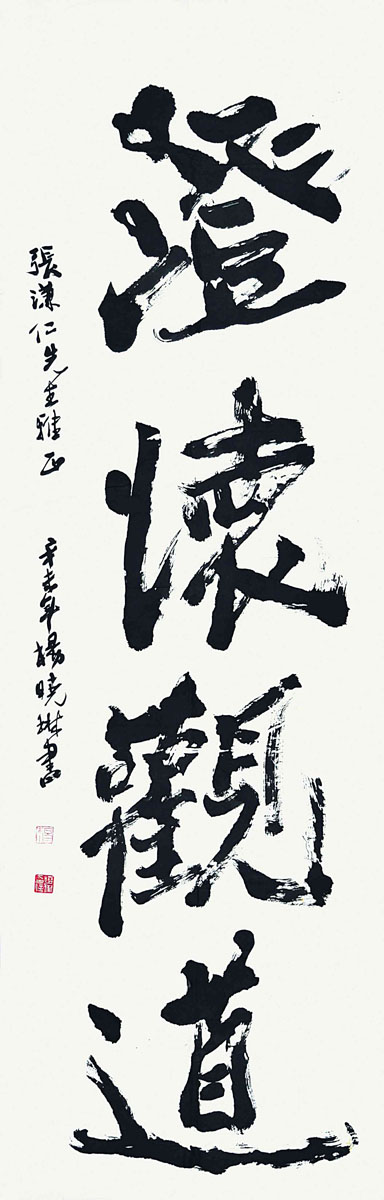 澄懷觀道
張谦仁先生雅正 辛未年楊曉琳書